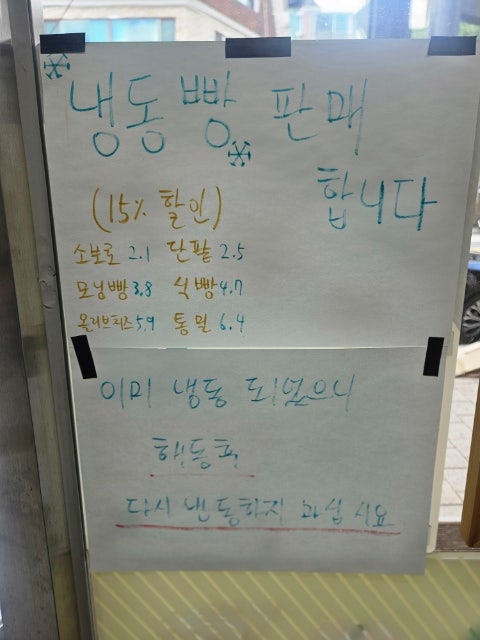 냉동빵 판매
합니다
(15% 할인)
소보로 2.1 단팥 2.5
모닝빵 3.8 식빵 4.7
올리브치즈 5.9 통밀 6.4
이미 냉동 되었으니
해동후
다시 냉동하지 마십시요